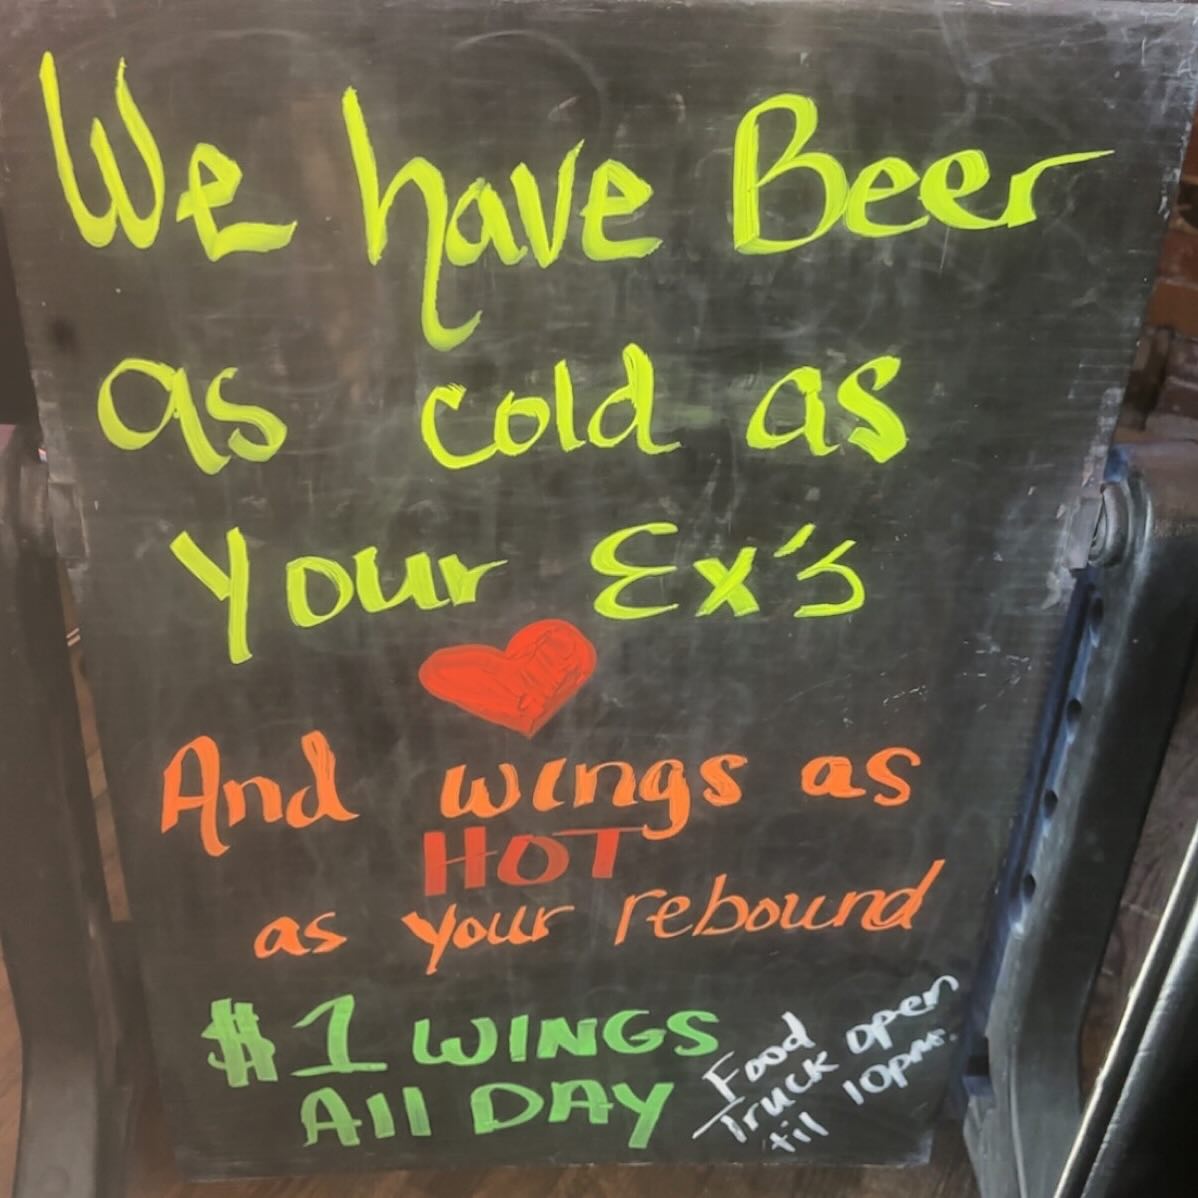 We have Beer
as cold as
your Ex's
And wings as
HOT
as your rebound
$1 WINGS
All DAY
Food
Truck open
'til 10pm.